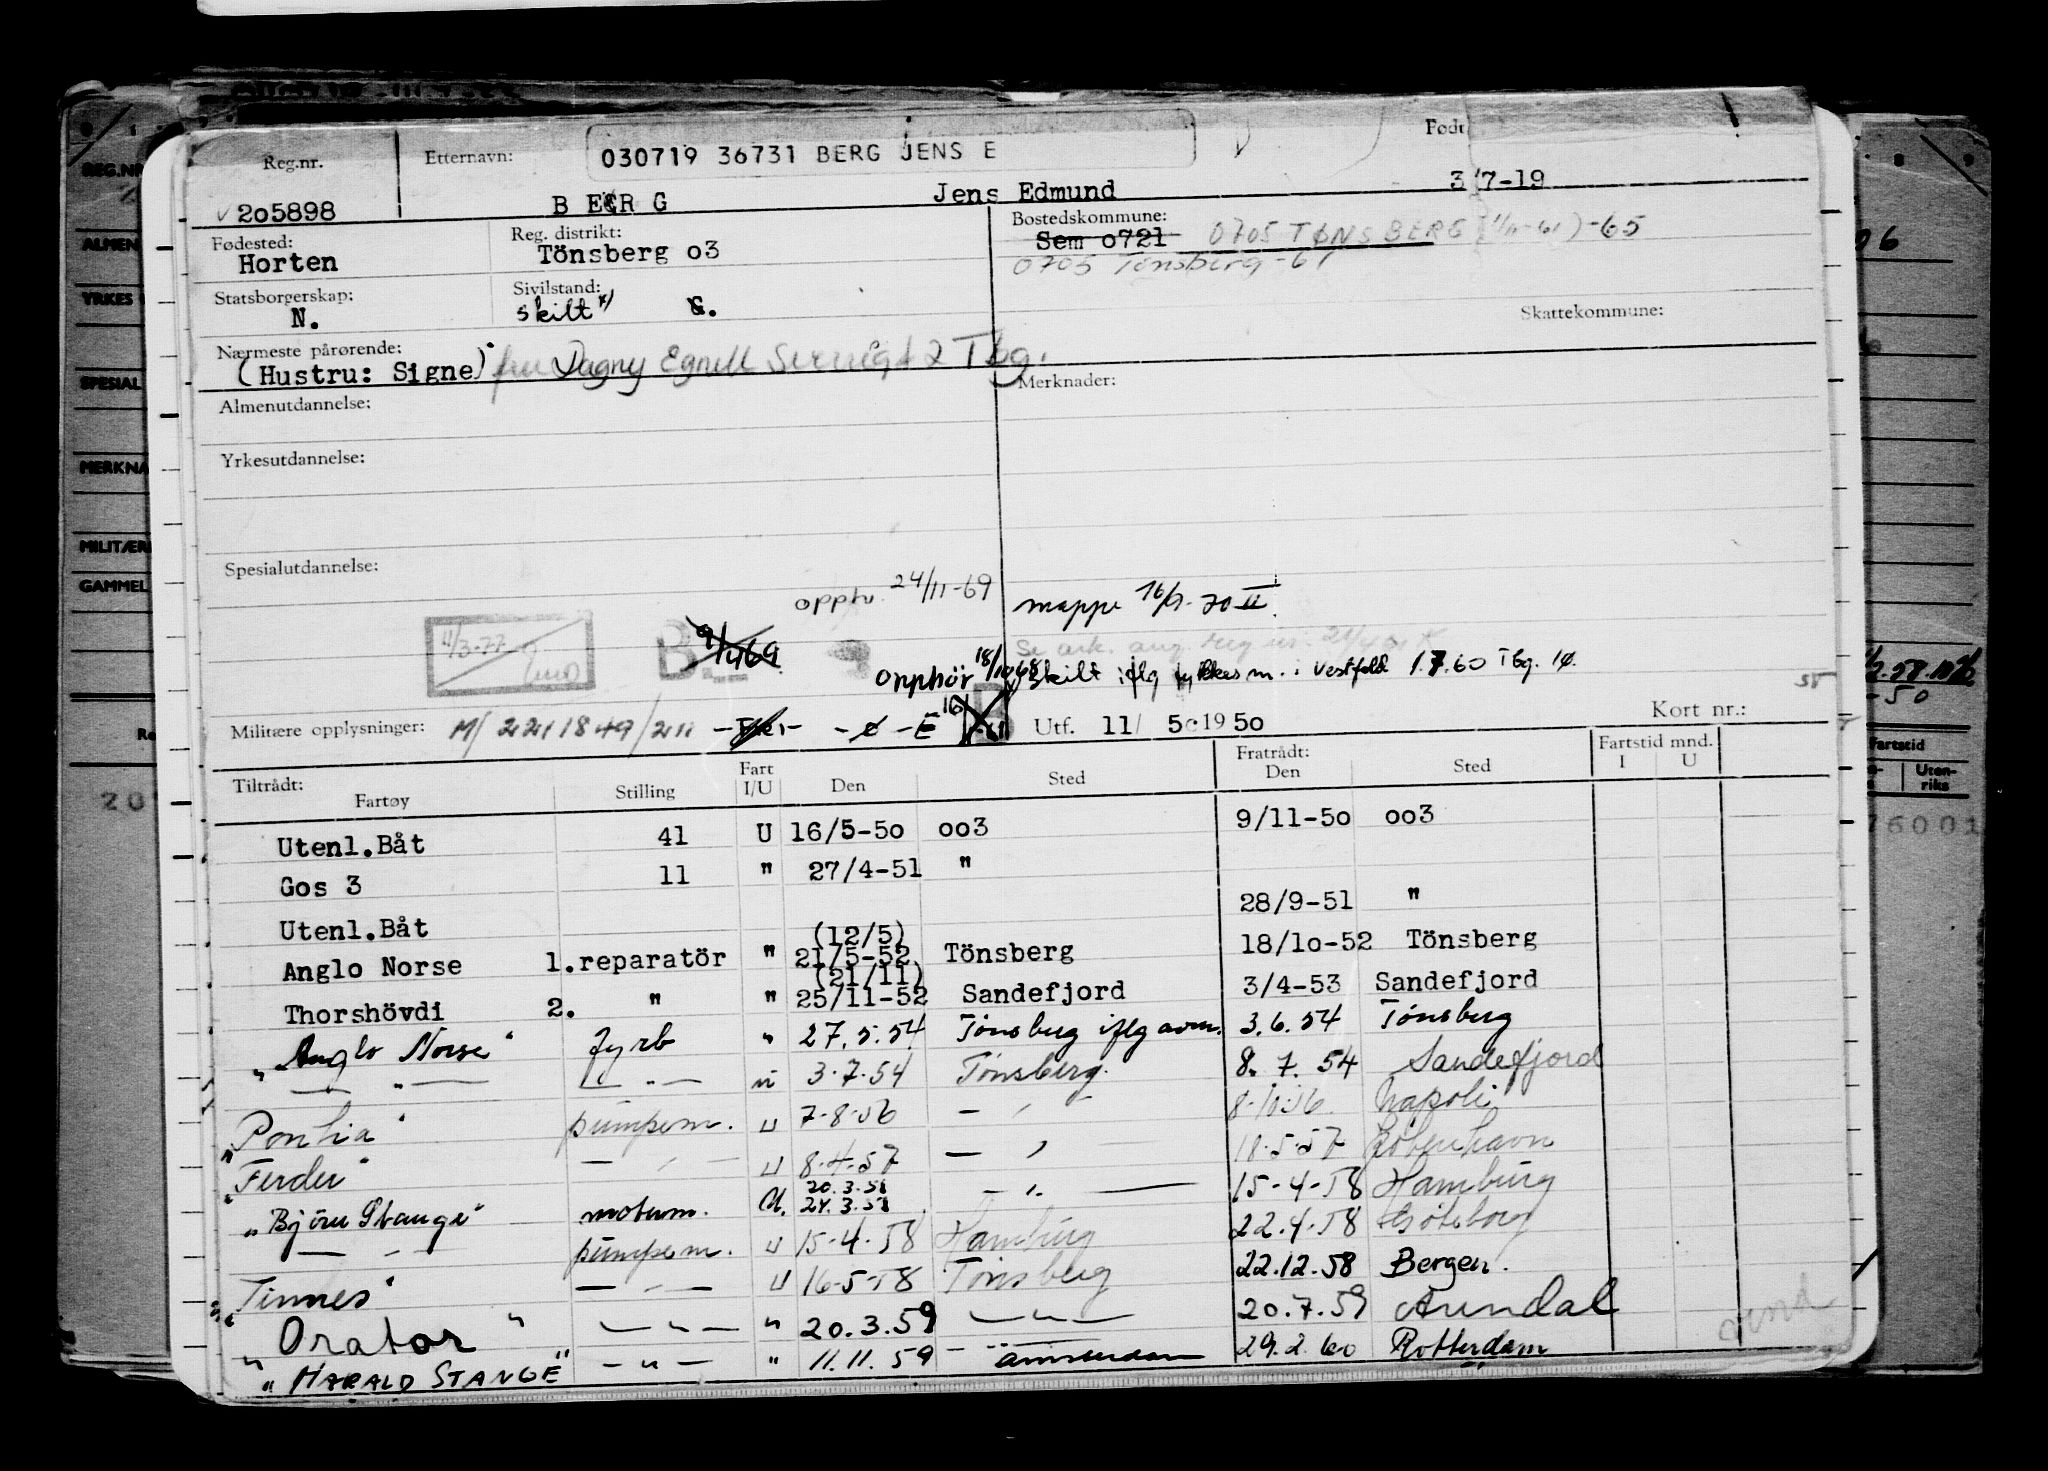 Reg.nr. Etternavn: 030719 36731 BERG JENS E Født
205898 BERG Jens Edmund 3/7-19
Fødested: Reg. distrikt: Bostedskommune:
Horten Tönsberg o3 Sem o721 0705 TØNSBERG (1/11-61)-65
0705 Tønsberg-61
Statsborgerskap: Sivilstand: Skattekommune:
N. skilt x) G.
Nærmeste pårørende:
(Hustru: Signe) fru Dagny Egnell Tbg.
Almenutdannelse: Merknader:
Yrkesutdannelse:
Spesialutdannelse:
opphør 24/11-69 mappe 16/9-70 II
11/3-77 B. 9/4 69
Opphör 18/10 68 x) Skilt iflg fylkesm. i Vestfold 1.7.60 Tbg. 10.
Militære opplysninger: M/ 2211849/211 -ø-E 16/ Utf. 11/ 5 1950 Kort nr.:
Tiltrådt: Fart Fratrådt: Fartstid mnd.
Fartøy Stilling I/U Den Sted Den Sted I U
Utenl.Båt 41 U 16/5-50 oo3 9/11-50 oo3
Gos 3 11 " 27/4-51 "
28/9-51 "
Utenl.Båt (12/5)
Anglo Norse 1.reparatör " 21/5-52 Tönsberg 18/1o-52 Tönsberg
(21/11)
Thorshövdi 2. " " 25/11-52 Sandefjord 3/4-53 Sandefjord
"Anglo Norse" fyrb " 27.5.54 Tønsberg iflg avm. 3.6.54 Tønsberg
— " — — " — u 3.7.54 Tønsberg. 8.7.54 Sandefjord
"Pontia" pumpem. u 7-8-56 — " — 8-10-56 Napoli
"Ferder" — " — u 8-4-57 — " — 11-5-57 København
20.3.58
"Björn Stange" motorm. U. 24.3.58 — " — 15-4-58 Hamburg
— " — pumpem. u 15-4-58 Hamburg 22.4-58 Göteborg
"Tinnes" — " — u 16-5-58 Tønsberg 22.12.58 Bergen.
"Orator" — " — " 20.3.59 — " — 20.7.59 Arendal
"HARALD STANGE" — " — " 11.11.59 Amsterdam 29.2.60 Rotterdam
REG.NR
ALMEN
YRKES
SPESIAL
MERKNA
MILITÆR
GAMMEL
Fartstid
Uten-
riks
76001